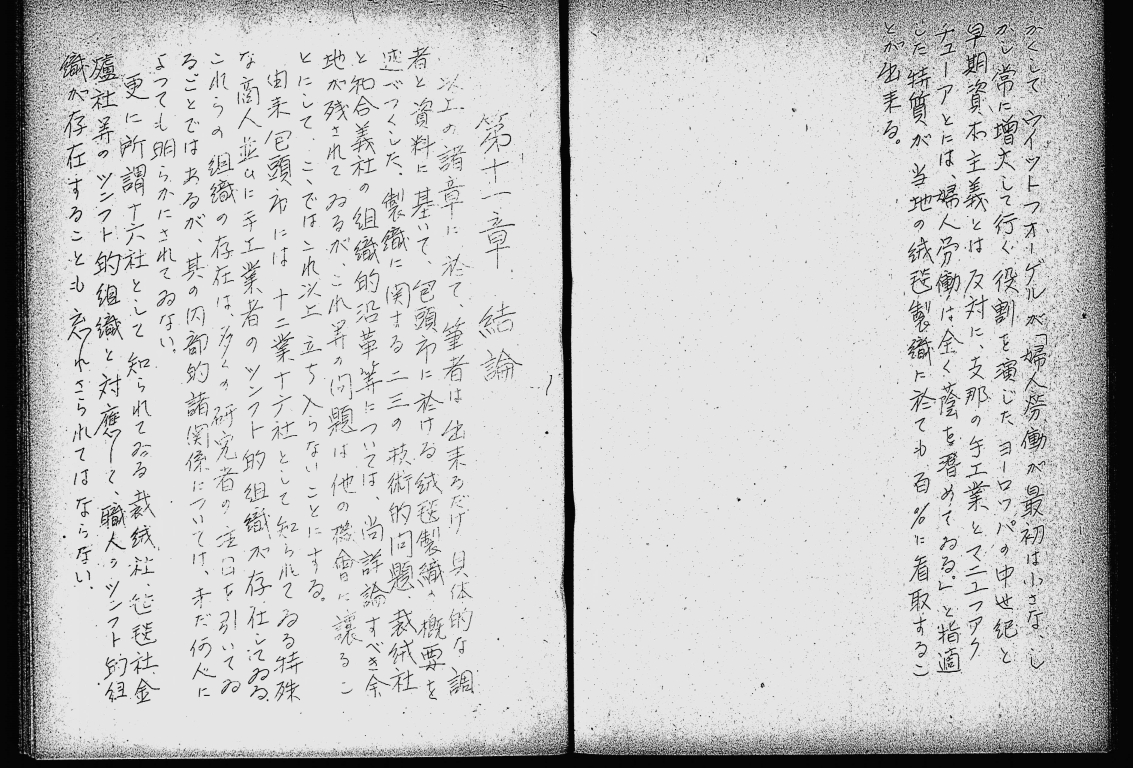 かくしてウイットフォーゲルが「婦人労働が最初は小さな、し
かし常に増大して行く役割を演じたヨーロッパの中世紀と
早期資本主義とは反対に、支那の手工業とマニュファク
チューアとには、婦人労働は全く蔭を潜めてゐる。」と指適
した特質が当地の絨毯製織に於ても百%に看取するこ
とが出来る。
第十一章 結論
以上の諸章に於て、筆者は出来るだけ具体的な調
者と資料に基いて包頭市に於ける絨毯製織の概要を
述べつくした、製織に関する二三の技術的問題、裁絨社
と和合義社の組織的沿革等については、尚詳論すべき余
地が残されてゐるがこれ等の問題は他の機會に譲るこ
とにして、こゝではこれ以上立ち入らないことにする。
由来包頭市には十二業十六社として知られてゐる特殊
な商人並ムに手工業者のツンフト的組織が存在してゐる、
これらの組織の存在は、多くの研究者の注目を引いてゐ
るごとではあるが、其の内部的諸関係については、未だ何人に
よつても明らかにされてゐない。
更に所謂十六社として知られてゐる裁絨社、毡毯社、金
爐社等のツンフト的組織と対應して、職人のツンフト的組
織が存在することも忘れさられてはならない、